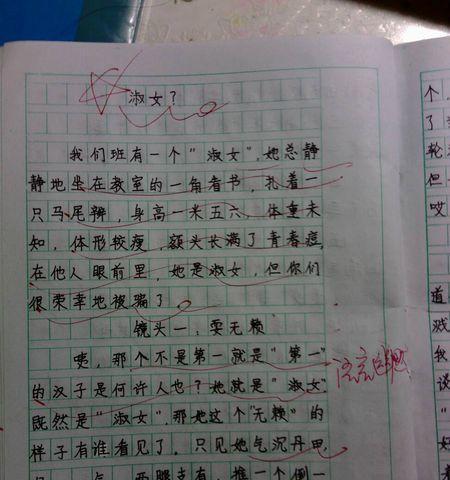 淑女?
我们班有一个"淑女",她总静
静地坐在教室的一角看书,扎着一
只马尾辫,身高一米五六,体重未
知,体形较瘦,额头长满了青春痘,
在他人眼前里,她是淑女,但你们
很荣幸地被骗了。
镜头一,耍无赖
咦,那个不是第一就是"第一"
的汉子是何许人也?她就是"淑女"
既然是"淑女",那她这个"无赖"的
样子有谁看见了,只见她气沉丹田,
个,
了
轮
但一
哎
道
我
说
"